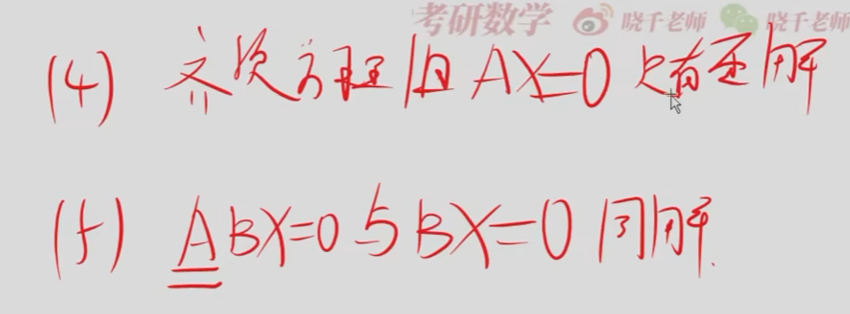 考研数学 晓千老师 晓千老师
(4) 齐次方程组AX=0只有零解
(5) ABX=0与BX=0同解.